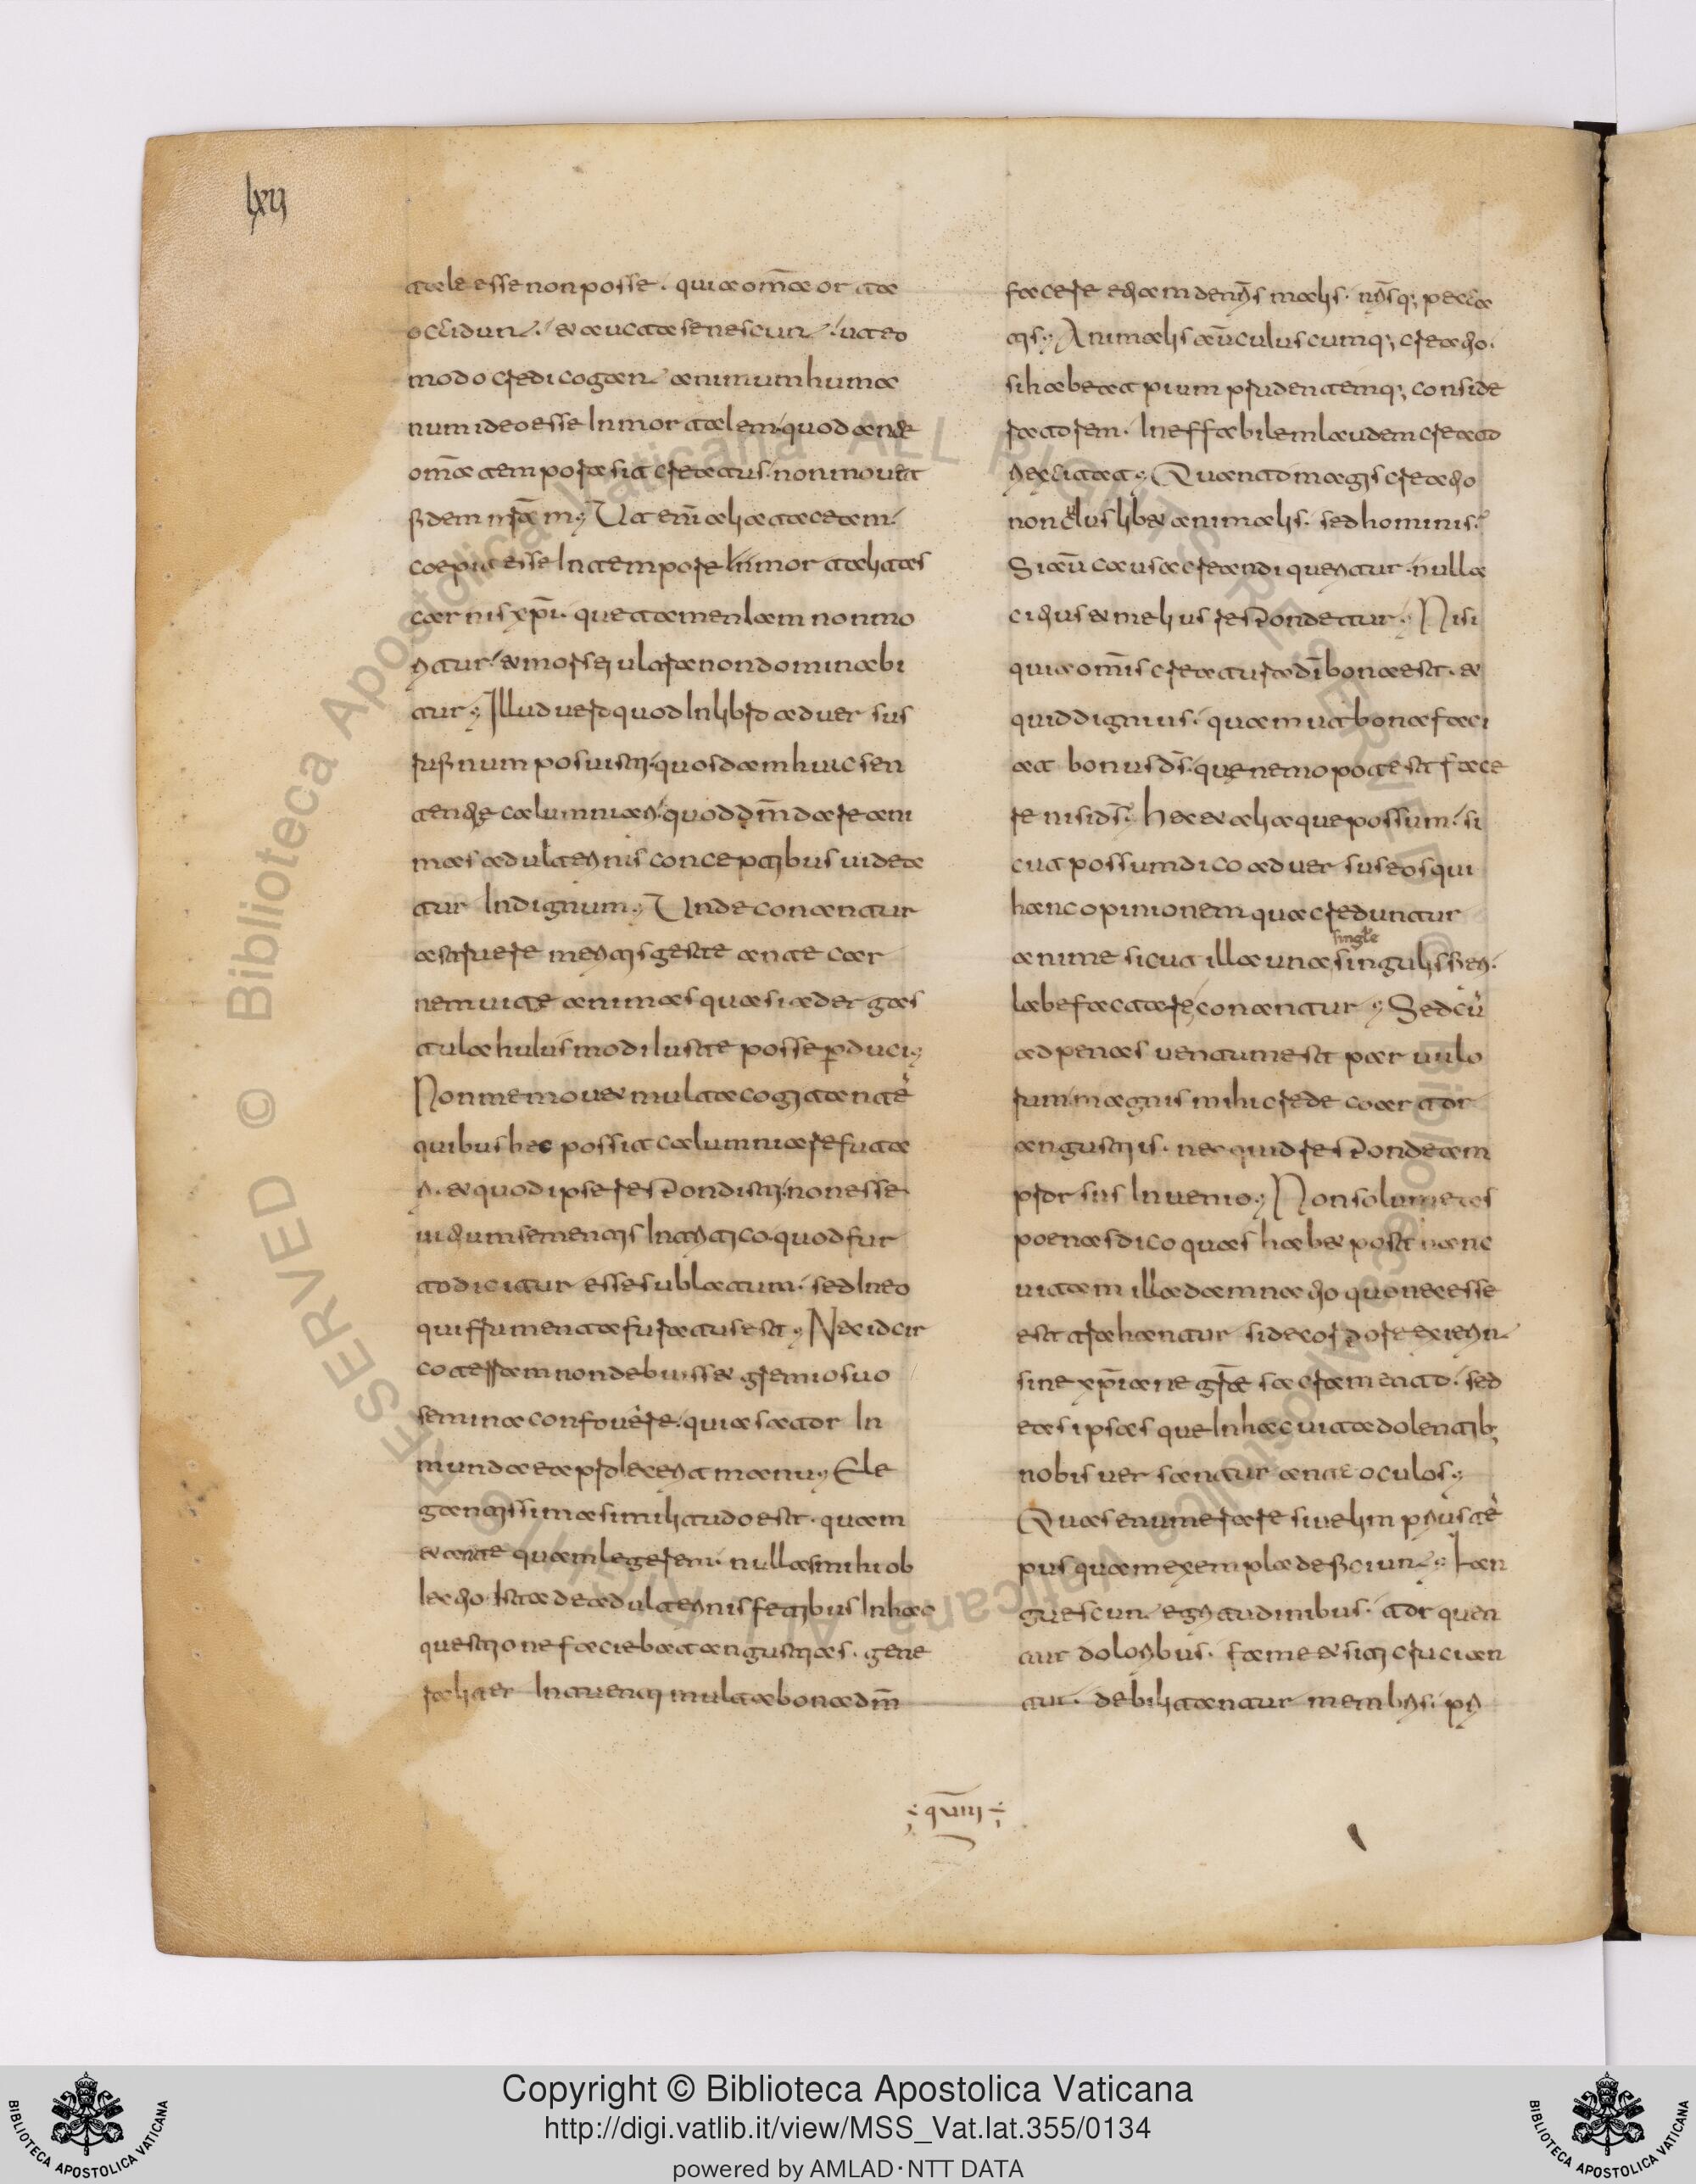 lxij
tale esse non posse. quia om̄a orta
occidunt. et aucta senescunt. ut eo
modo credi cogant animum huma
num ideo esse Inmortalem. quod ante
om̄a tempora sit creatus. non mouet
fidem nrām; Ut em̄ alia taceam.
coepit esse In tempore Inmortalitas
carnis xp̄i. que tamen Iam non mo
ritur. et mors ei ultra non dominabi
tur; Illud uero quod In libro aduersus
rufinum posuisti. quosdam huic sen
tentie calumniari. quod dn̄m dare ani
mas adulterinis conceptibus uidea
tur Indignum; Unde conantur
astruere meritis geste ante car
nem uite animas quasi ad ergas
tula huiusmodi Iuste posse perduci;
Non me mouet multa cogitante
quibus hec possit calumnia refuta
ri. et quod ipse respondisti. non esse
uitium sementis In tritico. quod fur
to dicitur esse sublatum. sed In eo
qui frumenta furatus est; Nec idcir
co terram non debuisset gremio suo
semina confouere. quia sator In
munda ea proIecerit manu; Ele
gantissima similitudo est. quam
et ante quam legerem. nullas mihi ob
Iectio Ista de adulterinis fetibus In hac
questione faciebat angustias. gene
raliter Intuenti multa bona dn̄m
facere etiam de nr̄is malis. nr̄isq; pecca
tis; Animalis aūt culus cumq; creatio.
si habeat pium prudentemq; conside
ratorem. Ineffabilem laudem creato
ri excitat; Quanto magis creatio
non culus libet animalis. sed hominis?
Si aūt causa creandi queritur. nulla
citius et melius respondetur; Nisi
quia om̄is creatura dī bona est. et
quid dignius. quam ut bona faci
at bonus dš. que nemo potest face
re nisi dš; hec et alia que possum. si
cut possum dico aduersus eos qui
hanc opinionem qua creduntur
singľe
anime sicut illa una singulis fieri.
labefactare conantur; Sed cū
ad penas uentum est paruulo
rum. magnis mihi crede coartor
angustiis. nec quid respondeam
prorsus Inuenio; Non solum eas
poenas dico quas habet post hanc
uitam illa damnatio quo necesse
est trahantur si de corpore exierint
sine xp̄iane grā̄e sacramento. sed
eas ipsas que In hac uita dolentib;
nobis uersantur ante oculos;
Quas enumerare si uelim prius tē
pus quam exempla deficiunt; Lan
guescunt egritudinibus. torquen
tur doloribus. fame et siti crucian
tur. debilitantur membris. pri
÷ qvıııj ÷
© Biblioteca Apostolica Vaticana ALL RIGHTS RESERVED
© Biblioteca Apostolica Vaticana ALL RIGHTS RESERVED
Copyright © Biblioteca Apostolica Vaticana
http://digi.vatlib.it/view/MSS_Vat.lat.355/0134
powered by AMLAD·NTT DATA
BIBLIOTECA APOSTOLICA VATICANA
BIBLIOTECA APOSTOLICA VATICANA